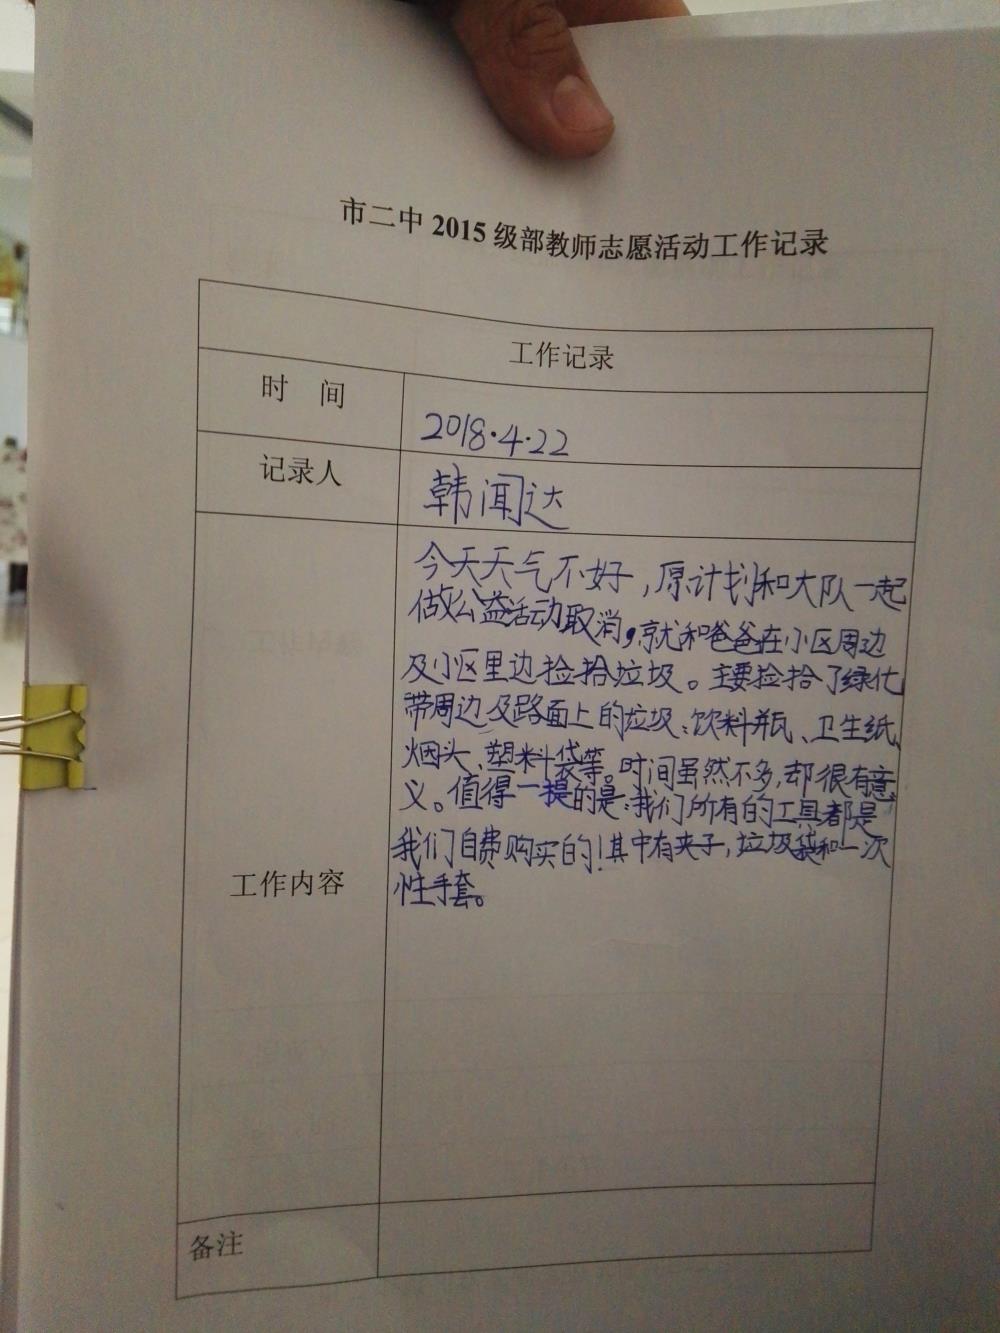 市二中 2015 级部教师志愿活动工作记录
工作记录
时 间
2018.4.22
记录人
韩闻达
工作内容
今天天气不好,原计划和大队一起
做公益活动取消,就和爸爸在小区周边
及小区里边捡拾垃圾。主要捡拾了绿化
带周边及路面上的垃圾:饮料瓶、卫生纸、
烟头、塑料袋等。时间虽然不多,却很有意
义。值得一提的是:我们所有的工具都是
我们自费购买的!其中有夹子,垃圾袋和一次
性手套。
备注